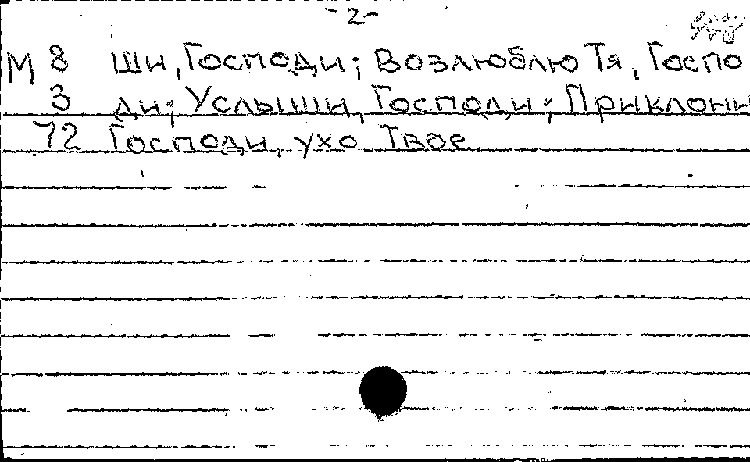 - 2 -
М 8 ши, Господи; Возлюблю Тя, Госпо
3 ди; Услыши, Господи; Приклони
72 Господи, ухо Твое